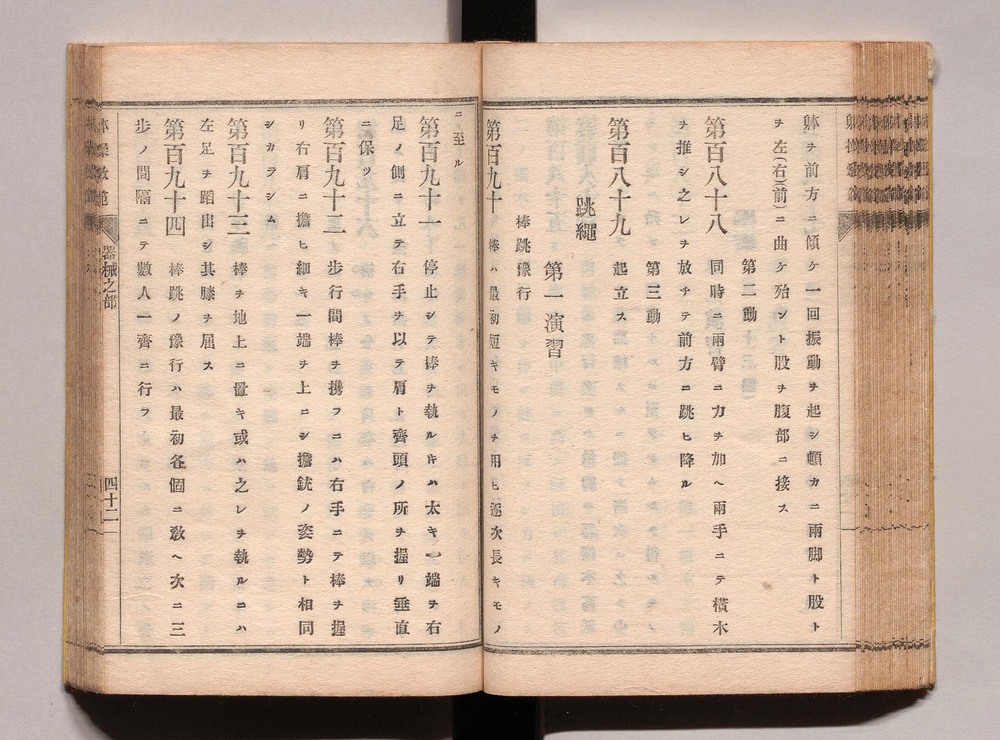 躰ヲ前方ニ傾ケ一回振動ヲ起シ頓カニ兩脚ト股ト
ヲ左(右)(前)ニ曲ケ殆ント股ヲ腹部ニ接ス
第二動
第百八十八 同時ニ兩臂ニ力ヲ加ヘ兩手ニテ横木
ヲ推シ之レヲ放チテ前方ニ跳ヒ降ル
第三動
第百八十九 起立ス
跳繩
第一演習
棒跳豫行
第百九十 棒ハ最初短キモノヲ用ヒ逐次長キモノ
ニ至ル
第百九十一 停止シテ棒ヲ執ルキハ太キ一端ヲ右
足ノ側ニ立テ右手ヲ以テ肩ト齊頭ノ所ヲ握リ垂直
ニ保ツ
第百九十二 步行間棒ヲ携フニハ右手ニテ棒ヲ握
リ右肩ニ擔ヒ細キ一端ヲ上ニシ擔銃ノ姿勢ト相同
シカラシム
第百九十三 棒ヲ地上ニ置キ或ハ之レヲ執ルニハ
左足ヲ蹈出シ其膝ヲ屈ス
第百九十四 棒跳ノ豫行ハ最初各個ニ敎ヘ次ニ三
步ノ間隔ニテ數人一齊ニ行フ
器械之部
四十二